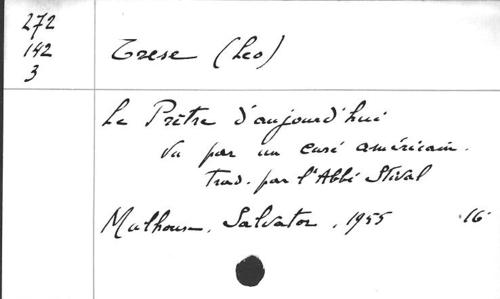 272
142
3
Trese (Leo)
Le Prêtre d'aujourd'hui
vu par un curé américain.
Trad. par l'Abbé Stival
Mulhouse, Salvator, 1955 16°